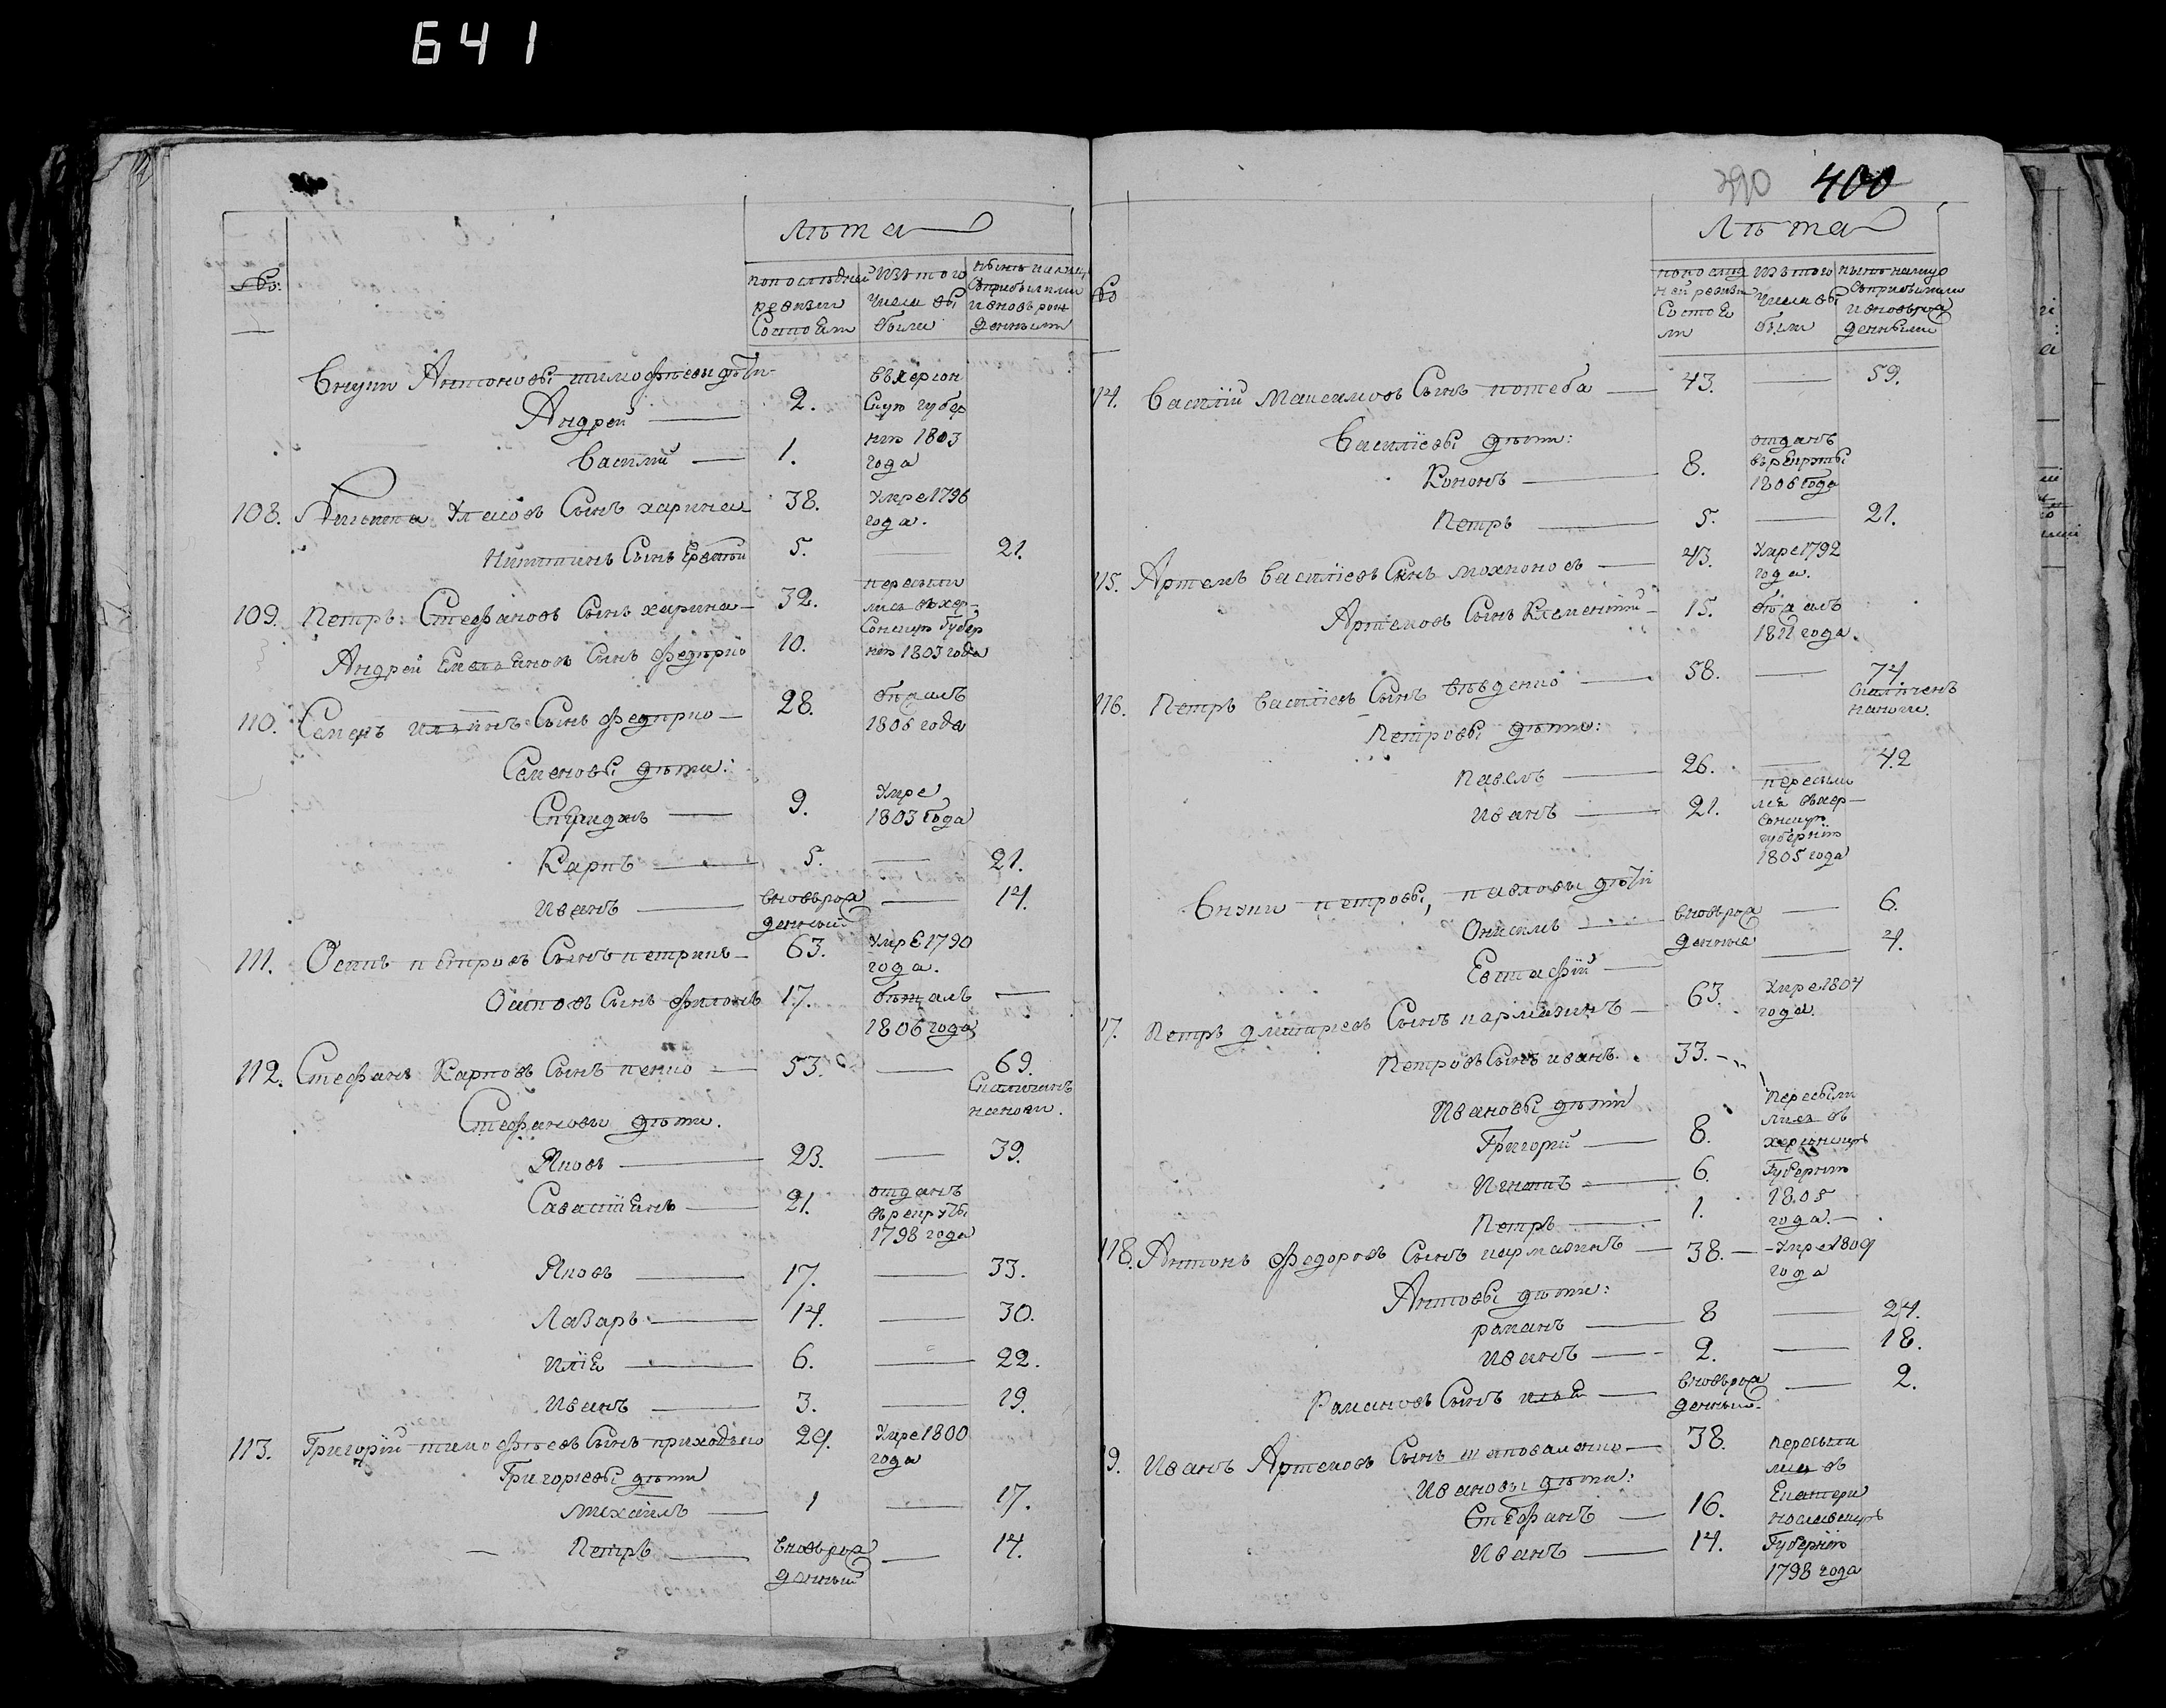 641
390 400
Лѣта
№:
по последней ревизии Состоятъ
изъ того числа выбыли
нынѣ налицо Съприбылыми и вновь рожденными
Внуки Антоновы тимофѣевы дѣти
Андрей — 2. въ херсон
Скую губер
Василий — 1. нию 1803
года
108. Никита Власовъ Сынъ харина 38. Умре 1796
года.
Никитинъ Сынъ Ерефей 5. — 21.
109. Петръ: Стефановъ Сынъ харина — 32. пересели
лись въ хер-
Сонскую Губер
Андрей Емельяновъ Сынъ федорко 10. нию 1803 года
110. Семенъ ильинъ Сынъ федорко — 28. бѣжалъ
1806 года
Семеновы дѣти:
Спиридонъ — 9. Умре
1803 года
Карпъ — 5. — 21.
Иванъ — вновь рож
денный — 14.
111. Осипъ петровъ Сынъ петрикъ — 63. Умре 1790
года.
Осиповъ Сынъ филонъ 17. бѣжалъ —
1806 года
112. Стефанъ Карповъ Сынъ пенко — 53. — 69.
Скалѣченъ
на ноги.
Стефановы дѣти.
Яковъ — 23. — 39.
Савастіянъ — 21. отданъ
въ рекруты
1798 года
Яковъ — 17. — 33.
Лазарь — 14. — 30.
Илія — 6. — 22.
Иванъ — 3. — 19.
113. Григорій тимофѣевъ Сынъ приходько 29. Умре 1800
года
Григорьевы дѣти
Михаилъ — 1 — 17.
Петръ — вновь рож
денный — 14.
Лѣта
№
по послед ней ревизи Состоя ли
изъ того числа вы были
нынѣ налицо Съприбылыми и вновь рож денными
14. Василій Максимовъ Сынъ потеба — 43. — 59.
Василіевы дѣти:
Кононъ — 8. отданъ
въ рекруты
1806 года
Петръ — 5. — 21.
15. Артемъ Василіевъ Сынъ мохноновъ — 43. Умре 1792
года.
Артемовъ Сынъ Клементий — 15. бѣжалъ
1811 года.
116. Петръ Василіевъ Сынъ — 58. — 74
Скалѣченъ
на ноги.
Петровы дѣти:
Павелъ — 26. — 42
Иванъ — 21. пересели
лся въ хер—
сонскую
губернію
1805 года
Внуки петровы, павловы дѣти
Онисимъ — вновь рож
денные — 6.
Евстафій — 4.
17. Петръ дмитріевъ Сынъ кармазинъ — 63. Умре 1804
года.
Петровъ Сынъ иванъ. 33.
Ивановы дѣти
Григорий — 8. Пересели
лися въ
херсонскую
Игнатъ — 6. Губернію
Петръ — 1. 1805
года.—
118. Антонъ федоровъ Сынъ кармазинъ — 38. — Умре 1809
года
Антоновы дѣти:
раманъ — 8 — 24.
Иванъ — 2. — 18.
Рамановъ Сынъ илья — вновь рож
денный. — 2.
9. Иванъ Артемовъ Сынъ шаповаленко — 38. Пересели
лися въ
Ивановы дѣти:
Стефанъ — 16. Екатери
нославскую
Иванъ — 14. Губернію
1798 года